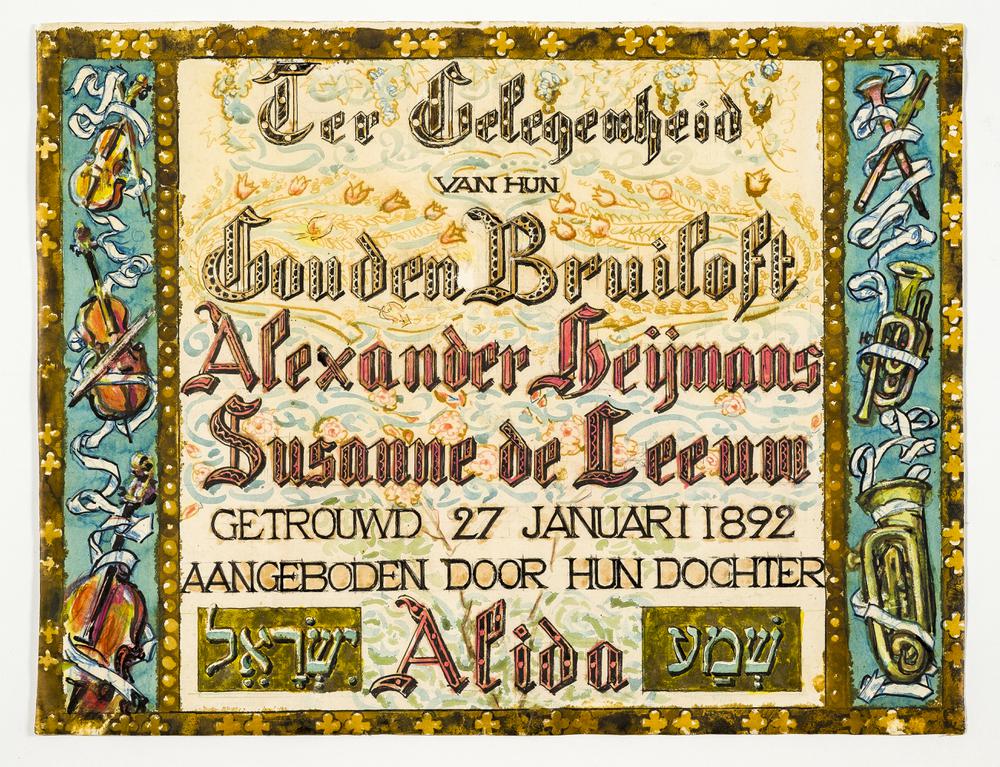 Ter Gelegenheid
VAN HUN
Gouden Bruiloft
Alexander Heijmans
Susanne de Leeuw
GETROUWD 27 JANUARI 1892
AANGEBODEN DOOR HUN DOCHTER
Alida
שְׁמַע יִשְׂרָאֵל